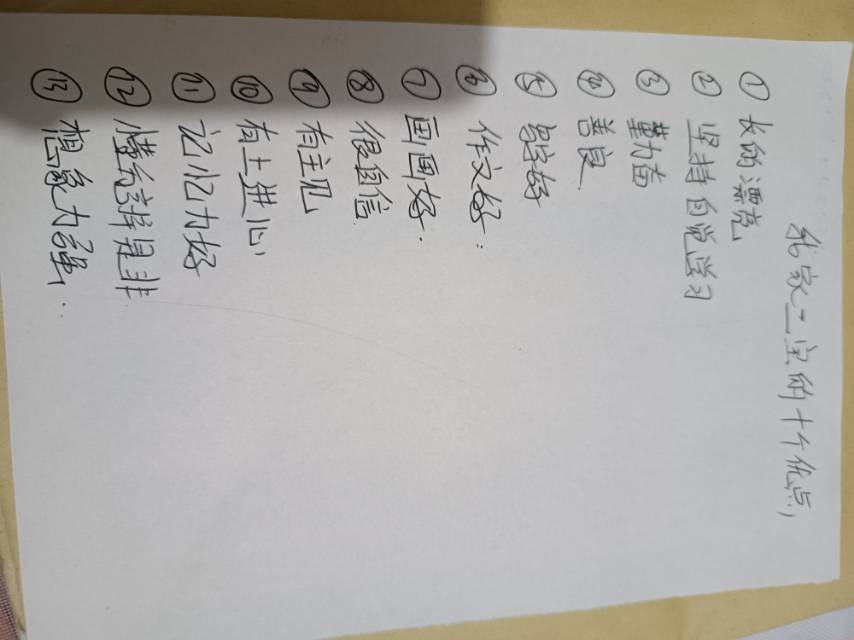 我家二宝的十个优点,
① 长的漂亮
② 坚持自觉学习
③ 勤奋
④ 善良
⑤ 写字好
⑥ 作文好:
⑦ 画画好.
⑧ 很自信.
⑨ 有主见
⑩ 有上进心
⑪ 记忆力好
⑫ 懂得辩是非
⑬ 想象力强.